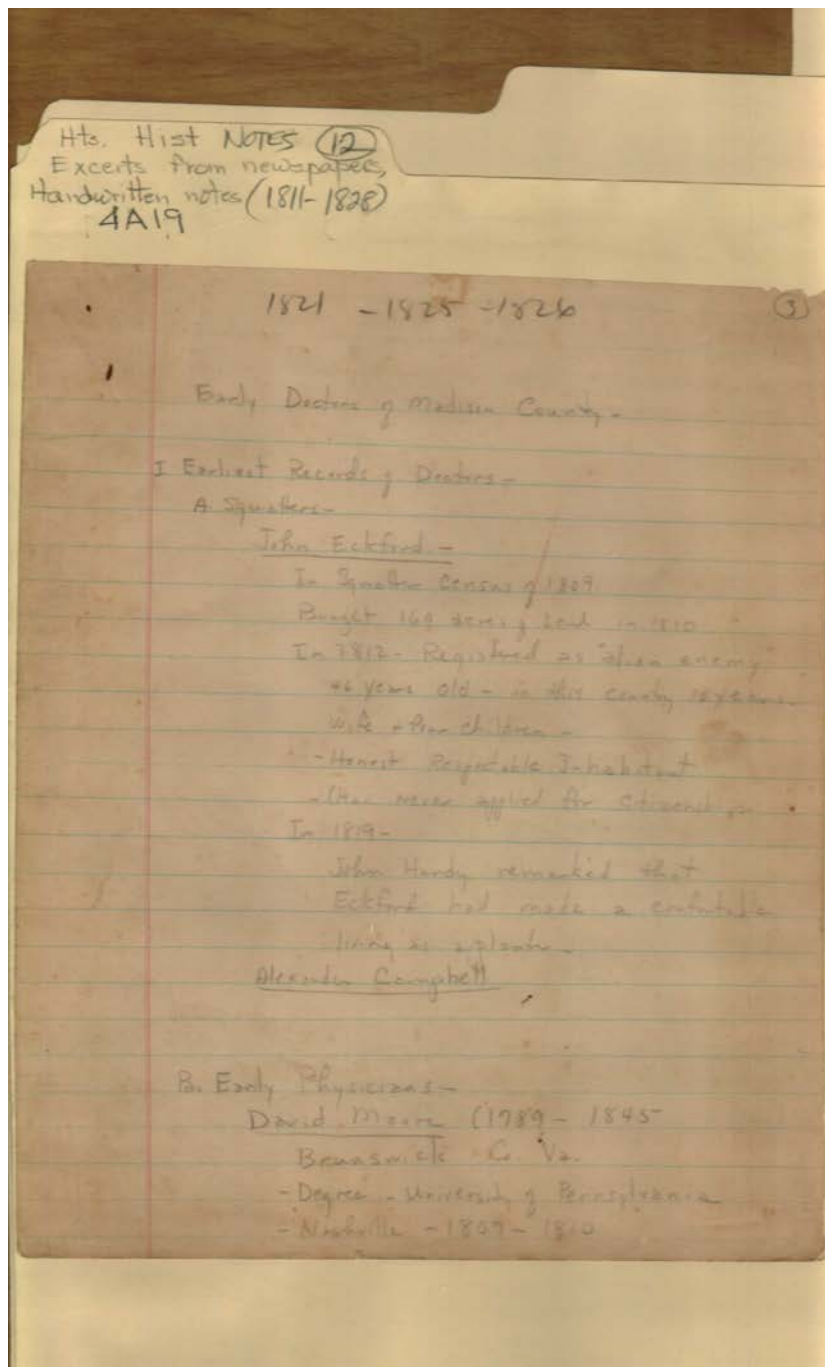 Hts. Hist NOTES 12
Excerts from newspapers,
Handwritten notes (1811-1828)
4A19
1821 - 1825 - 1826
3
Early Doctors of Madison County -
I Earliest Records of Doctors -
A Squatters -
John Eckford -
In Squatter Census of 1809
160 acres of land in 1810
In 1812 - Registered as "alien enemy"
46 years old - in this county
wife + four children -
- Honest Respectable Inhabitant
- (Has never applied for citizenship
In 1819 -
John Hardy remarked that
Eckford had made a comfortable
living as a planter -
Alexander Campbell
B. Early Physicians -
David Moore (1789 - 1845
Brunswick Co. Va.
- Degree - University of Pennsylvania
- Nashville - 1809 - 1810